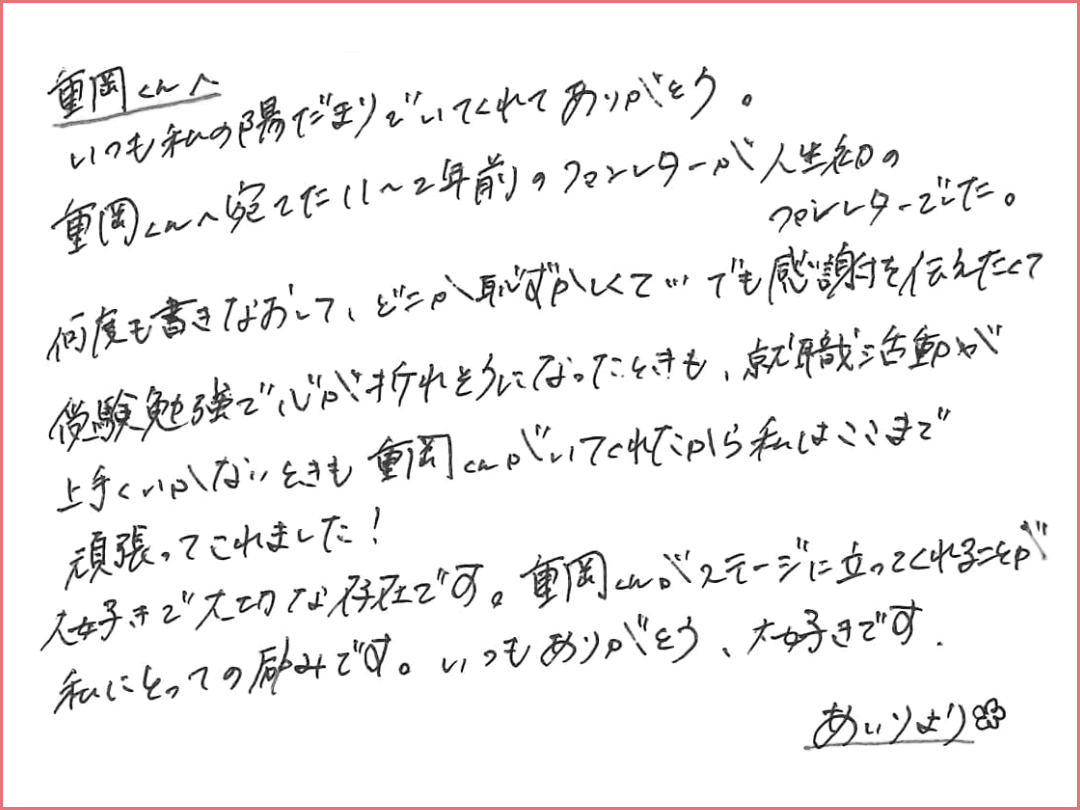 重岡くんへ
いつも私の陽だまりでいてくれてありがとう。
重岡くんへ宛てた11〜2年前のファンレターが人生初の
ファンレターでした。
何度も書きなおして、どこか恥ずかしくて… でも感謝を伝えたくて
受験勉強で心が折れそうになったときも、就職活動が
上手くいかないときも重岡くんがいてくれたから私はここまで
頑張ってこれました!
大好きで大切な存在です。重岡くんがステージに立ってくれることが
私にとっての励みです。いつもありがとう、大好きです.
あいりより